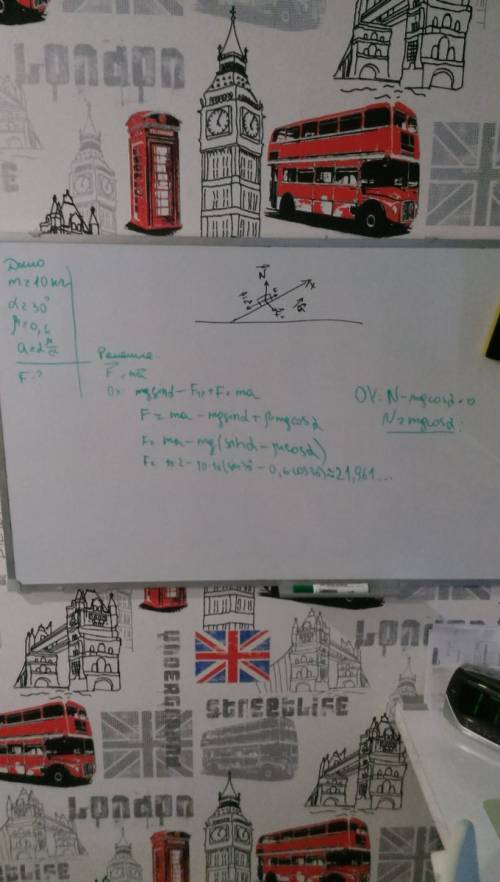 LONDON
TELEPHONE
Дано
m = 10 кг
α = 30°
μ = 0,6
a = 2 м/с²
F - ?
Решение
N
x
Ox: mgsinα - Fтр + F = ma
F = ma - mgsinα + μmgcosα
F = ma - mg(sinα - μcosα)
F = 10·2 - 10·10(sin30 - 0,6cos30) ≈ 21,961...
OY: N - mgcosα = 0
N = mgcosα
LONDON
UNDERGROUND
STREETLIFE
LONDON
STREETLIFE